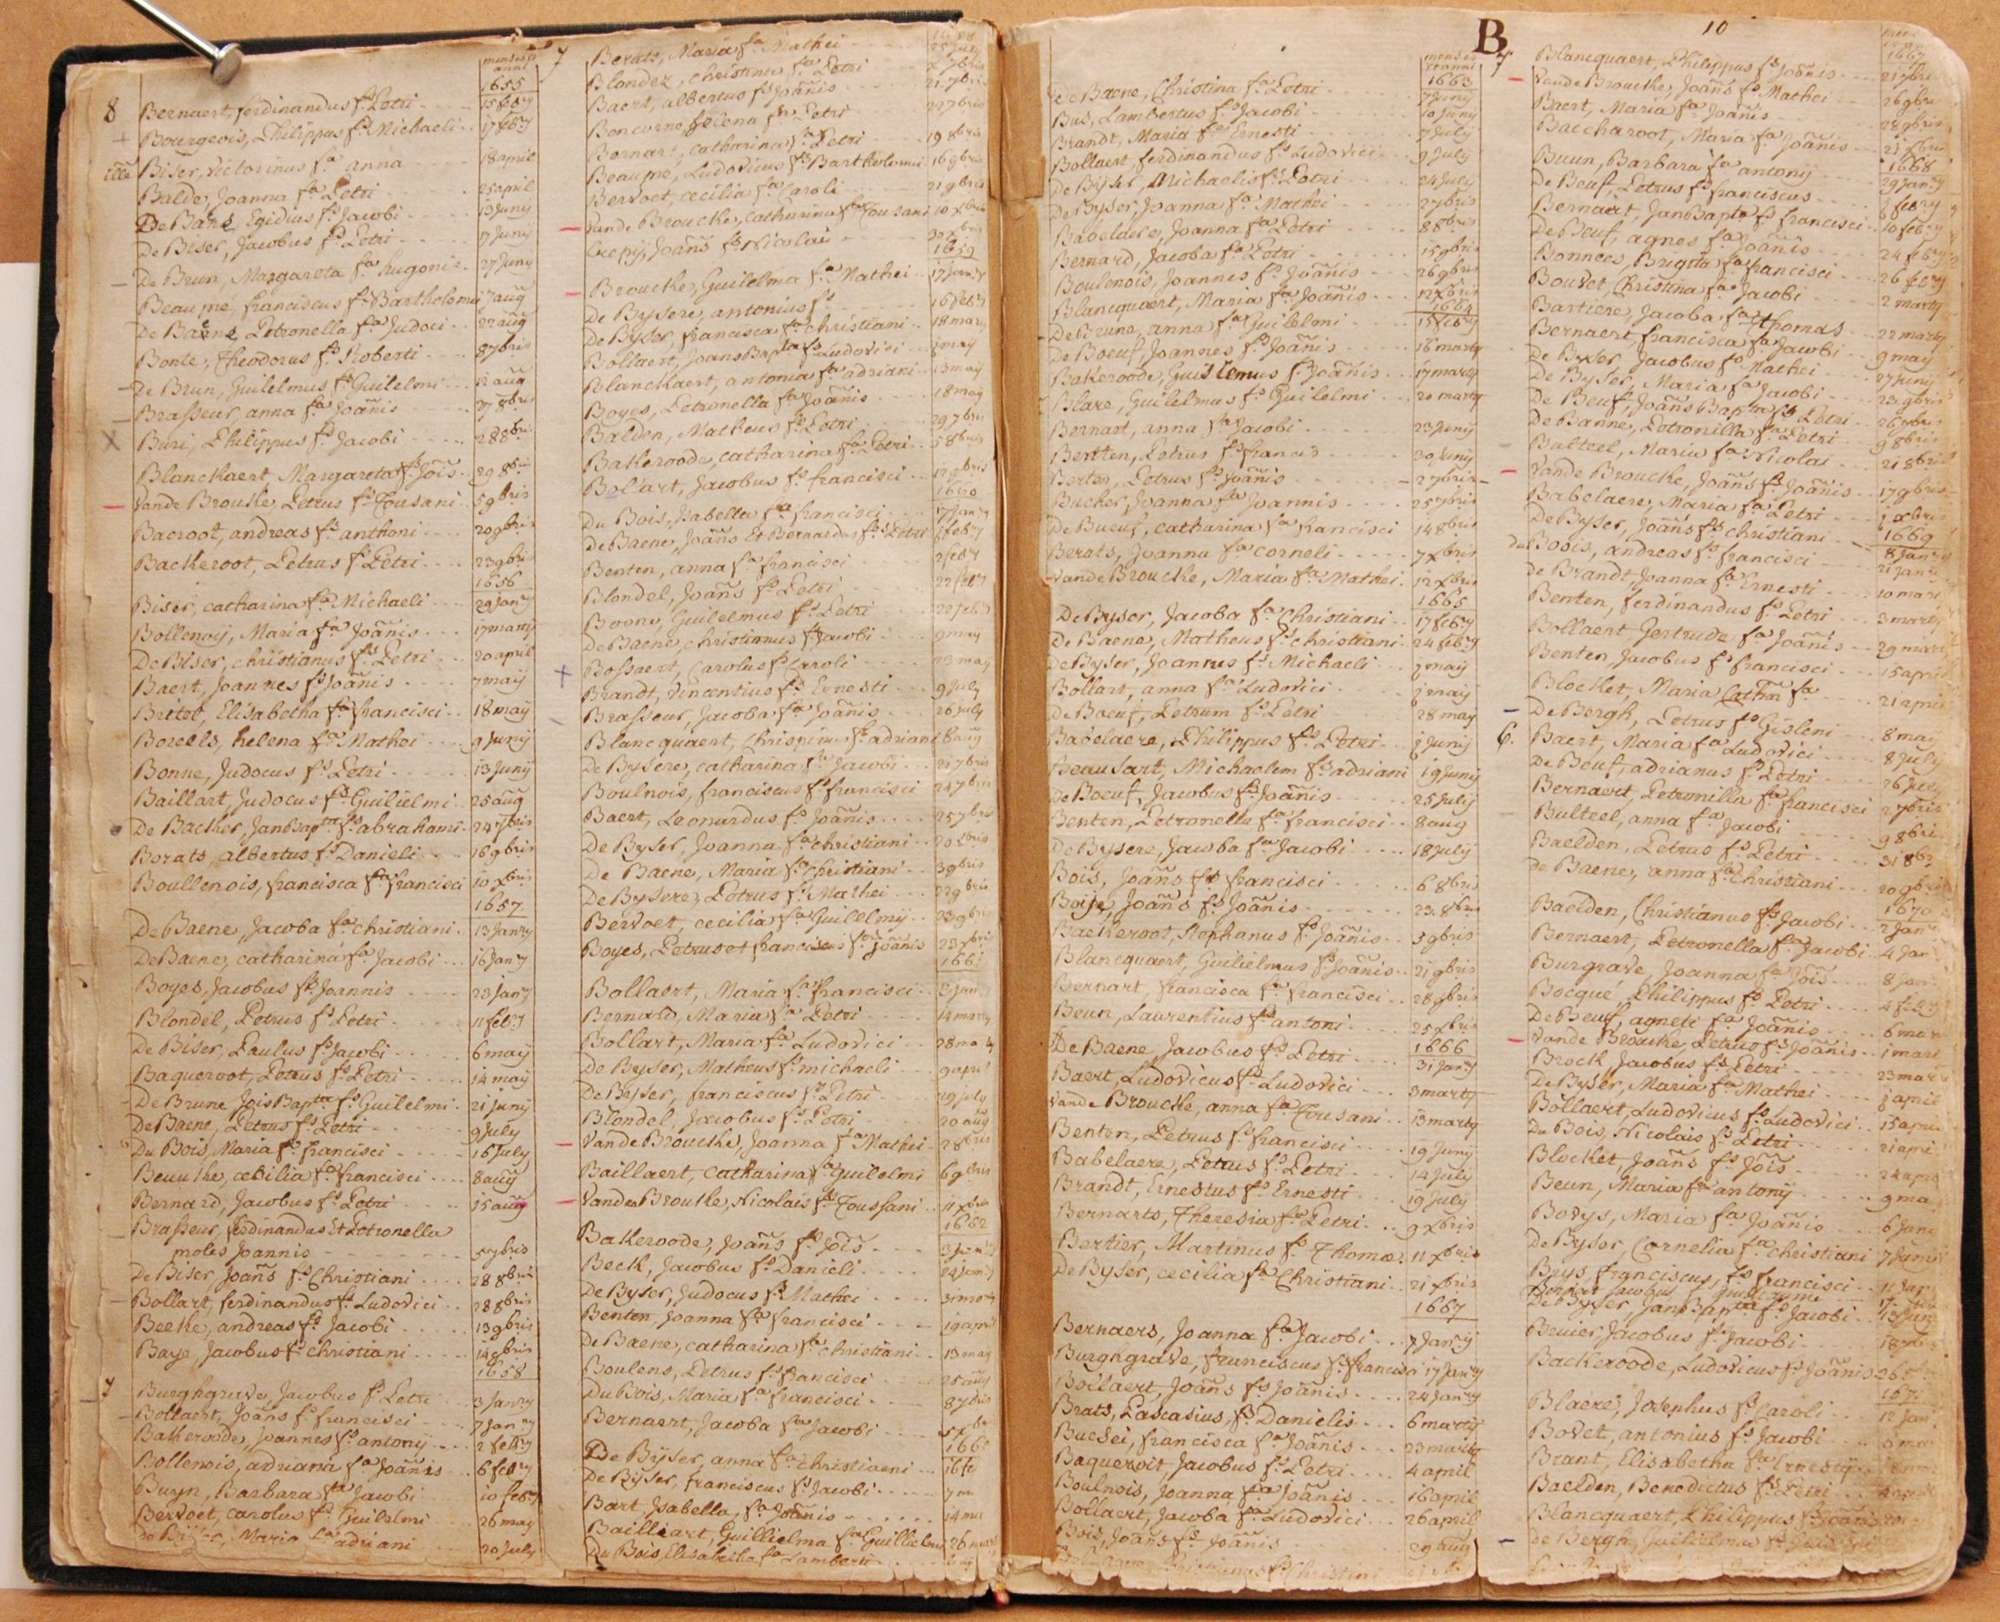 menses et anni
1655
8 Bernaert, ferdinandus fs Petri 15 feby
Bourgeois, Philippus fs Michaeli 17 feby
Biser, victorinus fa anna 18 april
Balde, Joanna fa Petri 25 april
De Bane Egidius fs Jacobi 13 Juny
De Biser, Jacobus fs Petri 17 Juny
De Brun, Margareta fa hugonis 27 Juny
Beaupre, franciscus fs Bartholomei 17 aug
De Baene Petronella fa Judoci 22 aug
Bonte, Theodorus fs Roberti 8 7bris
De Brun, Guilelmus fs Guilelmi 12 aug
Brasseur, anna fa Joãnis 27 8bris
Buri, Philippus fs Jacobi 28 8bris
Blanckaert, Margareta fa Jõis 29 8bris
Vande Brouke, Petrus fs Tousani 5 9bris
Bacroot, andreas fs anthoni 20 9bris
Backeroot, Petrus fs Petri 23 9bris
1656
Biser, catharina fa Michaeli 29 Jany
Bollenoij, Maria fa Joãnis 17 marty
De Biser, christianus fs Petri 20 april
Baert, Joannes fs Joãnis 7 maij
Britel, Elisabetha fa francisci 18 maij
Borells, helena fa Mathei 9 Junij
Bonne, Judocus fs Petri 13 Junij
Baillart, Judocus fs Guilielmi 25 aug
De Backer, JanBapta fs abrahami 24 7bris
Borats, albertus fs Danieli 16 9bris
Boullenois, francisca fa francisci 10 xbris
1657
De Baene, Jacoba fa christiani 13 Jany
De Baene, catharina fa Jacobi 16 Jany
Boyes, Jacobus fs Joannis 23 Jany
Blondel, Petrus fs Petri 11 feby
De Biser, Paulus fs Jacobi 6 maij
Baqueroot, Petrus fs Petri 14 maij
De Brune JoisBapta fs Guilelmi 21 junij
De Baene, Petrus fs Petri 9 July
Du Bois, Maria fa francisci 16 July
Beuuke, cecilia fa francisci 8 aug
Bernard, Jacobus fs Petri 15 aug
Brasseur, ferdinandus Et Petronella
moles Joannis 5 9bris
De Biser Joãns fs Christiani 28 8bris
Bollart, ferdinandus fs Ludovici 28 8bris
Beeke, andreas fs Jacobi 13 9bris
Baye, Jacobus fs christiani 14 xbris
1658
7 Burghgrave, Jacobus fs Petri 3 Jany
Bollaert, Joãns fs francisci 7 Jany
Bakeroode, Joannes fs antonij 2 feby
Bollenois, adriana fa Joãnis 6 feby
Buyn, Barbara fa Jacobi 10 feby
Bervoet, carolus fs Guilelmi 26 maij
De Biser, Maria fa adriani 20 July
7 Berats, Maria fa Mathei 25 July
Blondez, christina fa Petri 7bris
Baert, albertus fs Joãnis 21 7bris
Boncurne, Elena fa Petri 22 7bris
Bornart, catharina fa Petri 19 8bris
Beaupre, Ludovicus fs Bartholomei 16 9bris
Bervoet, cecilia fa Caroli 21 9bris
Vande Broucke, catharina fa Tousani 10 xbris
Crepij, Joãnis fs Nicolai
1659
Broucke, Guilelma fa Mathei 17 Jany
De Bysere, antonius fs 16 feby
De Byser, francisca fa christiani 18 marty
Bollaert, JoansBapta fs Ludovici maij
Blanckaert, antonia fa adriani 13 maij
Boyes, Petronella fa Joãnis 18 maij
Balden, Matheus fs Petri 29 7bris
Bakeroode, catharina fa Petri 5 8bris
Bollart, Jacobus fs francisci 17 9bris
1660
Du Bois, Isabella fa francisci 17 Jany
De Baene, Joãns Et Bernardus fs Petri feby
Benten, anna fa francisci 2 feby
Blondel, Joãns fs Petri 22 feby
Boone, Guilelmus fs Petri
De Baene, christianus fs Jacobi 9 maij
Bossaert, Carolus fs caroli 23 maij
Brandt, Vincentius fs Ernesti 9 July
Brasseur, Jacoba fa Joãnis 26 July
Blancquaert, Chrispinus fs adriani aug
De Bysere, catharina fa Jacobi 21 7bris
Boulnois, franciscus fs francisci 24 7bris
Baert, Leonardus fs Joãnis 25 7bris
De Byser, Joanna fa christiani 20 xbris
De Baene, Maria fa christiani 3 9bris
De Bysere, Petrus fs Mathei 22 9bris
Bervoet, cecilia fa Guilelmy 23 9bris
Boyes, Petrus et franciscus fs Joãnis 23 xbris
1661
Bollaert, Maria fa francisci
Bernard, Maria fa Petri 14 marty
Bollart, Maria fa Ludovici 28 marty
De Byser, Matheus fs michaeli 9 april
De Byser, franciscus fs Petri 29 July
Blondel, Jacobus fs Petri 20 aug
Van de Broucke, Joanna fa Mathei 28 8bris
Baillaert, Catharina fa Guilelmi 6 9bris
Vande Brouke, Nicolais fs Toussani 11 xbris
1662
Bakeroode, Joãns fs Jõis 3 Jany
Beck, Jacobus fs Danieli 24 Jany
De Byser, Judocus fs Mathei 31 marty
Benten, Joanna fa francisci 19 april
De Baene, catharina fa christiani 13 maij
Boulens, Petrus fs francisci 25 aug
Du Bois, Maria fa francisci 8 7bris
Bernaert, Jacoba fa Jacobi
De Byser, anna fa christiaeni
De Byser, franciscus fs Jacobi
Bart Isabella, fa Joãnis
Bailliart, Guillielma fa Guillielmi
Du Bois Elisabetha fa Lamberti
B
menses et anni
1663
De Baene, Christina fa Petri 7 Junij
Bus, Lambertus fs Jacobi 10 Junij
Brandt, Maria fa Ernesti 7 July
Bollaert ferdinandus fs Ludovici 9 July
De Byser, Michaelis fs Petri 24 July
De Byser, Joanna fa Mathei 27 8bris
Babelaere, Joanna fa Petri 8 8bris
Bernard, Jacoba fa Petri 15 9bris
Boulenois, Joannes fs Joãnis 26 9bris
Blancquaert, Maria fa Joãnis 12 xbris
1664
De Brune, anna fa Guilelmi 15 feby
De Boeuf, Joannes fs Joãnis 16 marty
Bakeroode, Guislemus fs Joãnis 17 marty
Blare, Guilelmus fs Guilelmi 20 marty
Bernart, anna fa Jacobi 23 Junij
Bentten, Petrus fs francis 30 Junij
Berten, Petrus fs Joãnis 27bris
Bucker, Joanna fa Joannis 25 7bris
De Bueuf, catharina fa francisci 14 8bris
Berats, Joanna fa corneli 7 xbris
Vande Broucke, Maria fa Mathei 12 xbris
1665
De Byser, Jacoba fa Christiani 17 feby
De Baene, Matheus fs christiani 24 feby
De Byser, Joannes fs Michaeli 7 maij
Bollart, anna fa Ludovici maij
De Boeuf, Petrum fs Petri 28 maij
Babelaere, Philippus fs Petri Junij
Beausart, Michaelem fs adriani 19 Junij
De Boeuf, Jacobus fs Joãnis 25 July
Benten, Petronella fa francisci 8 aug
De Bysere, Jacoba fa Jacobi 18 July
Bois, Joãns fs francisci 6 8bris
Boije, Joãns fs Joãnis 23 8bris
Backeroot, Stephanus fs Joãnis 3 9bris
Blancquaert, Guilielmus fs Joãnis 21 9bris
Bernart, francisca fa francisci 28 9bris
Beun, Laurentius fs antoni 25 xbris
1666
De Baene, Jacobus fs Petri 31 Jany
Baert, Ludovicus fs Ludovici 3 marty
Vande Broucke, anna fa Tousani 13 marty
Benten, Petrus fs francisci 19 Junij
Babelaere, Petrus fs Petri 14 July
Brandt, Ernestus fs Ernesti 19 July
Bernarts, Theresia fa Petri 9 xbris
Bertier, Martinus fs Thomae 11 xbris
De Byser, cecilia fa Christiani 21 xbris
1667
Bernaers, Joanna fa Jacobi 7 Jany
Burghgrave, franciscus fs francisci 17 Jany
Bollaert, Joãns fs Joãnis 24 Jany
Brats, Pascasius, fs Danielis 6 marty
Bucsei, francisca fa Joãnis 23 marty
Baqueroit, Jacobus fs Petri 4 april
Boulnois, Joanna fa Joãnis 16 april
Bollaert, Jacoba fa Ludovici 26 april
Bois, Joãns fs Joãnis 29 aug
10
1667
7 Blancquaert, Philippus fs Joãnis 21 7bris
Vande Broucke, Joãns fs Mathei 26 9bris
Baert, Maria fa Joãnis 28 9bris
Baccharoot, Maria fa Joãnis 21 xbris
1668
Buun, Barbara fa antonij 29 Jany
De Beuf, Petrus fs franciscus feby
Bernaert, JansBapta fs francisci 10 feby
De Beuf, agnes fa Joãnis 24 feby
Bonnees, Brigitta fa francisci 26 feby
Bouvet Christina fa Jacobi 2 marty
Bartiere, Jacoba fa Thomas 22 marty
Bernaert francisca fa Jacobi 9 maij
De Byser Jacobus fs Mathei 27 Junij
De Byser, Maria fa Jacobi 23 9bris
De Beuf, JoãnsBapta fs Petri 26 7bris
De Banne, Petronilla fa Petri 9 8bris
Bulteel, Maria fa Nicolai 21 8bris
Vande Broucke, Joãns fs Joãnis 17 9bris
Babelaere, Maria fa Petri xbris
De Byser, Joãns fs christiani
1669
du Boois, andreas fs francisci 8 Jany
De Brandt, Joanna fa Ernesti 21 Jany
Benten, ferdinandus fs Petri 3 marty
Bollaert Gertrude fa Joãnis 29 marty
Benten Jacobus fs francisci 15 april
Blocket, Maria Cathar fa 21 april
De Bergh, Petrus fs Gisleni 8 mai
6. Baert, Maria fa Ludovici 8 July
De Beuf, adrianus fs Petri 26 July
Bernaert, Petronilla fa francisci 2 7bris
Bulteel, anna fa Jacobi 9 8bris
Baelden, Petrus fs Petri 31 8bris
De Baene, anna fa Christiani 20 9bris
1670
Baelden, Christianus fs Jacobi 2 Jany
Bernaert, Petronella fa Jacobi 4 Jany
Burgrave, Joanna fa Jois 8 Jan
Bocqué, Philippus fs Petri 4 feby
De Beuf, agneti fa Joãnis 6 mar
Vande Broucke, Petrus fs Joãnis mart
Brock Jacobus fs Petri 23 mart
De Byser, Maria fa Mathei april
Bollaert, Ludovicus fs Ludovici 15 april
Du Bois, Nicolais fs Petri 21 april
Blocket, Joãns fs Jõis 24 april
Beun, Maria fa antonij 9 ma
Bovys, Maria fa Joãnis 6 June
De Byser Cornelia fa christiani 7 Junij
Buys, franciscus, fs francisci
De Byser, JansBapta fs Jacobi
Bevier, Jacobus fs Jacobi
Backeroode, Ludovicus fs Joãnis
Blaere, Josephus fs Caroli 12 Jan
Bovet, antonius fs Jacobi
Brant, Elisabetha fa Ernestij
Baelden, Benedictus fs Petri
Blancquaert, Philippus fs Joãnis
De Bergh, Guilielmus fs